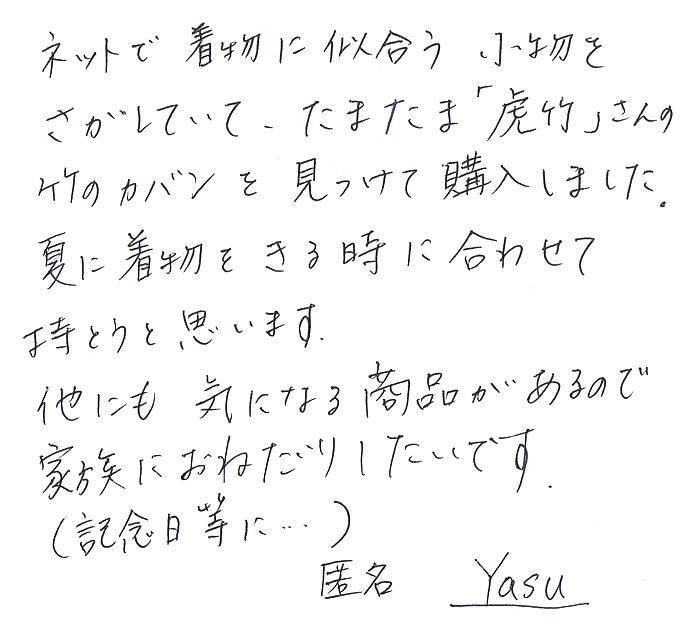 ネットで着物に似合う小物を
さがしていて、たまたま「虎竹」さんの
竹のカバンを見つけて購入しました。
夏に着物をきる時に合わせて
持とうと思います。
他にも気になる商品があるので
家族におねだりしたいです。
(記念日等に…)
匿名 Yasu